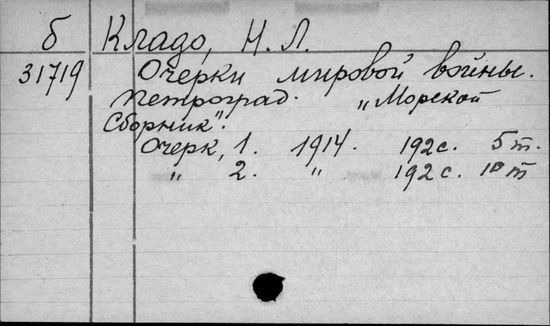 б Кладо, Н. Л.
31719 Очерки мировой войны.
Петроград. „Морской
Сборник".
Очерк, 1. 1914. 192 с. 5 т.
„ 2. „ 192 с. 10 т